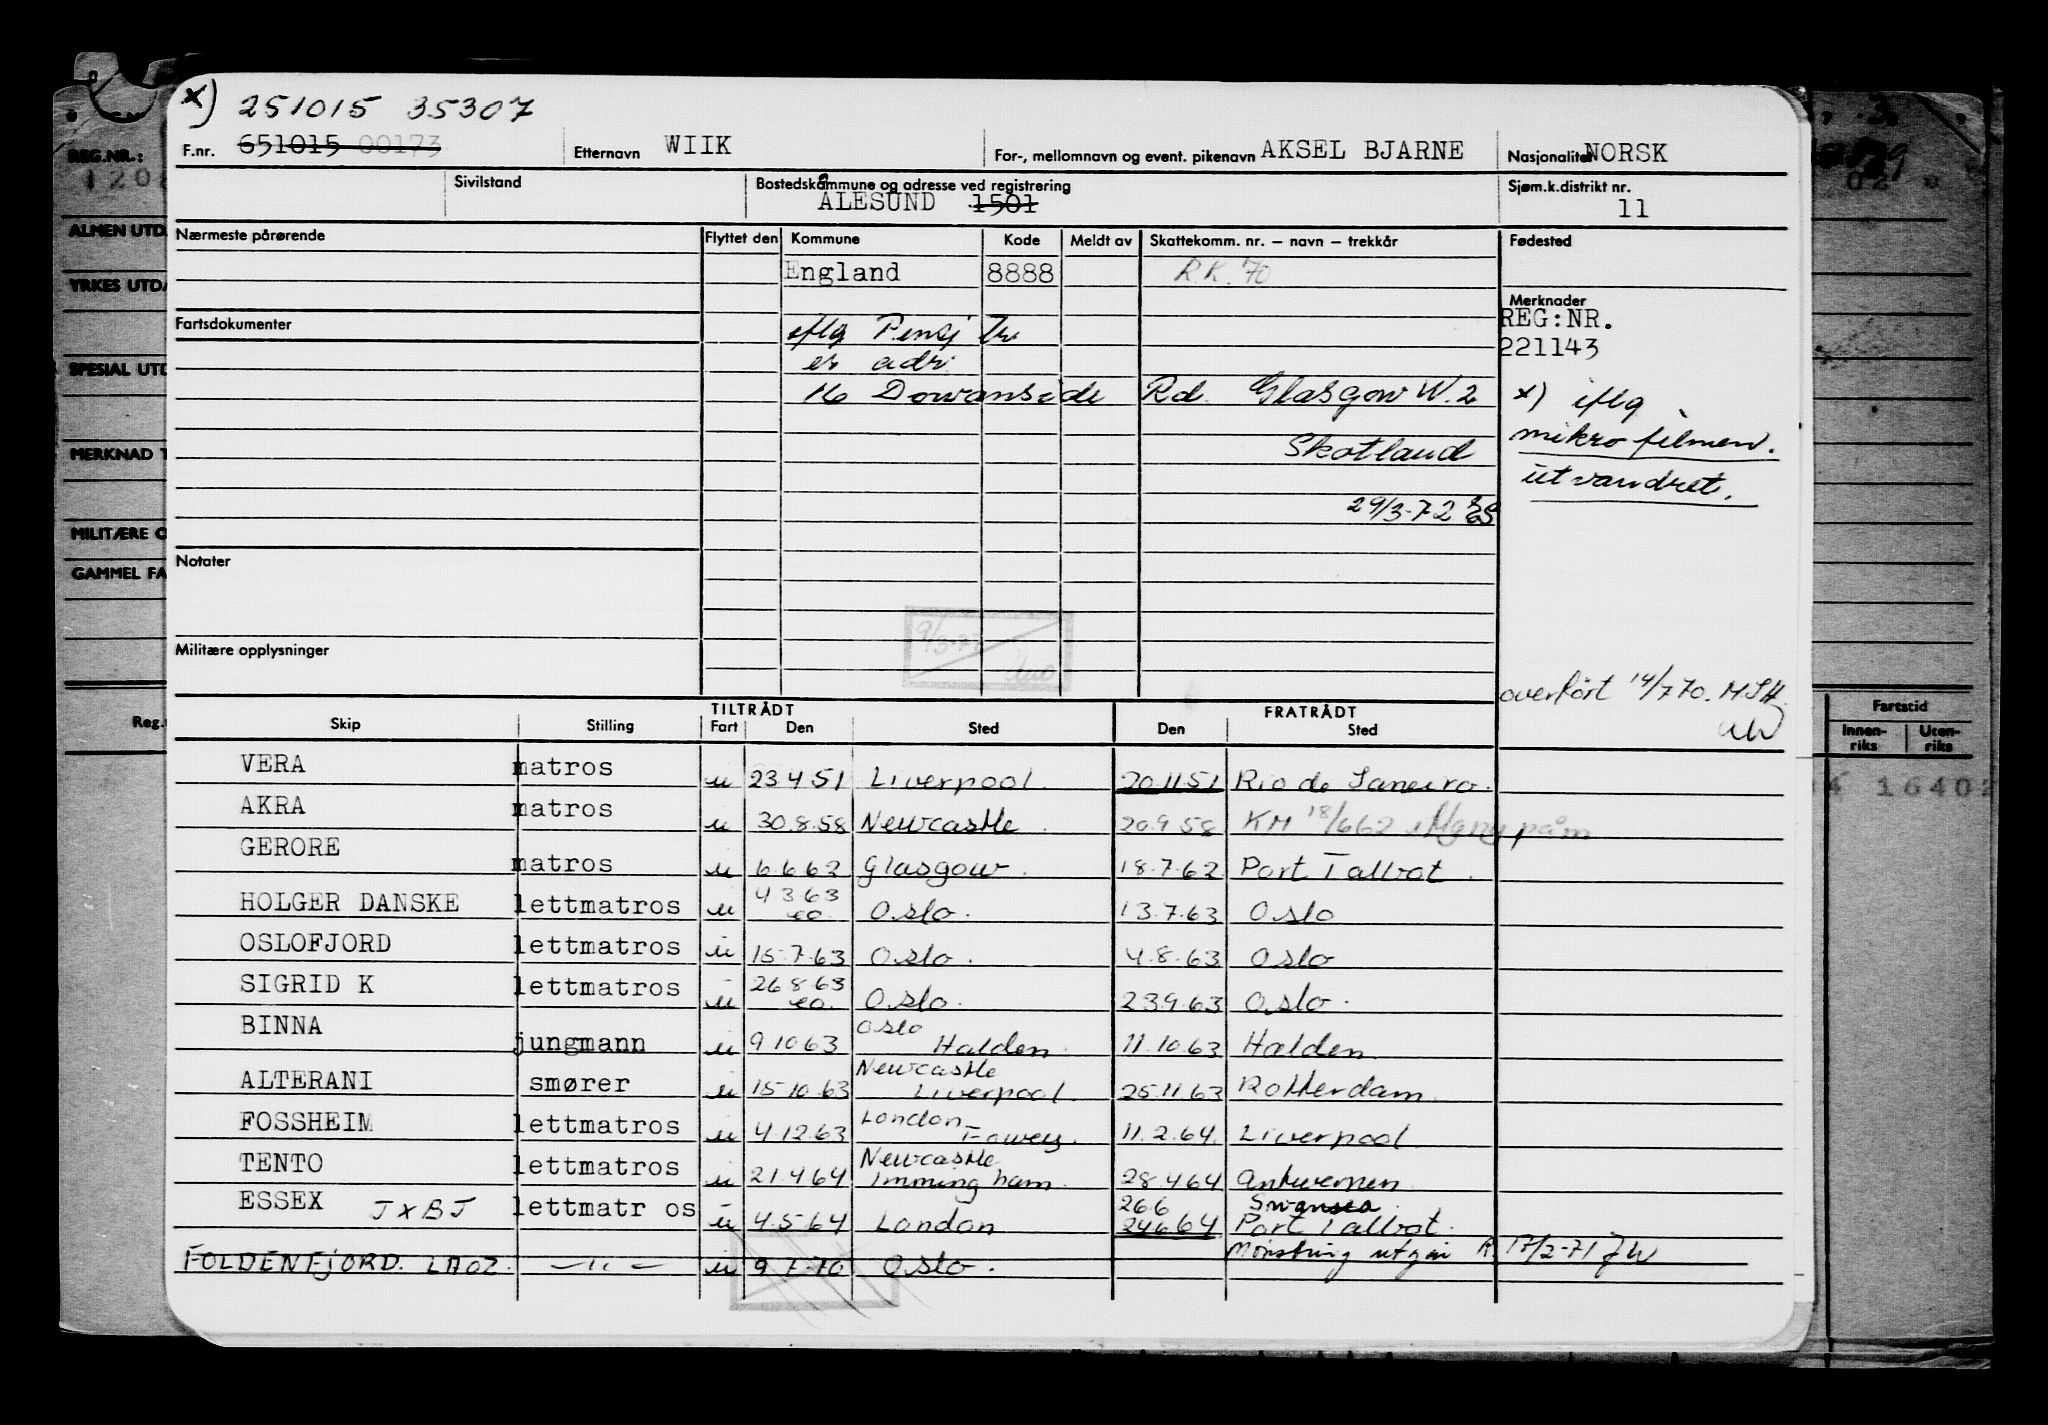 x) 251015 35307
F.nr. 651015 00173 Etternavn WIIK For-, mellomnavn og event. pikenavn AKSEL BJARNE Nasjonalitet NORSK
Sivilstand Bostedskommune og adresse ved registrering Sjøm.k.distrikt nr.
ÅLESUND 1501 11
Nærmeste pårørende Flyttet den Kommune Kode Meldt av Skattekomm. nr. – navn – trekkår Fødested
England 8888 R.K. 70
Merknader
REG:NR.
221143
Fartsdokumenter
iflg Pensj Tr.
er adr.
16 Dowanside Rd. Glasgow W.2
Skotland
29/3-72
x) iflg
mikrofilmen.
utvandret.
Notater
9/3-72
Militære opplysninger
overført 14/7 70. MSH
TILTRÅDT FRATRÅDT
Skip Stilling Fart Den Sted Den Sted
VERA matros u 23 4 51 Liverpool. 20.11 51 Rio de Janeiro.
AKRA matros u 30.8.58 Newcastle. 20.9 58 KM 18/6 62
GERORE matros u 6.6.62 Glasgow. 18.7.62 Port Talbot.
HOLGER DANSKE lettmatros u 4 3 63 eo. Oslo. 13.7.63 Oslo
OSLOFJORD lettmatros u 15.7.63 Oslo. 4.8.63 Oslo
SIGRID K lettmatros u 26 8 63 eo. Oslo. 23.9.63 Oslo.
BINNA jungmann u 9 10 63 Oslo Halden. 11.10.63 Halden
ALTERANI smører u 15 10 63 Newcastle Liverpool. 25.11.63 Rotterdam.
FOSSHEIM lettmatros u 4.12.63 London Fowey. 11.2.64. Liverpool
TENTO lettmatros u 21.4 64 Newcastle Immingham. 28.4.64 Antwerpen
ESSEX JXBJ lettmatr os u 4.5.64 London 26 6 24.6 64 Swansea Port Talbot.
FOLDENFJORD. LAOZ. –"– u 9 7.70 Oslo. Mønstring utgår R. 17/2-71 JW
REG.NR.:
ALMEN UTD
YRKES UTDA
SPESIAL UTD
MERKNAD T
MILITÆRE O
GAMMEL FA
Reg.
Fartstid
Innen-riks Uten-riks
16402